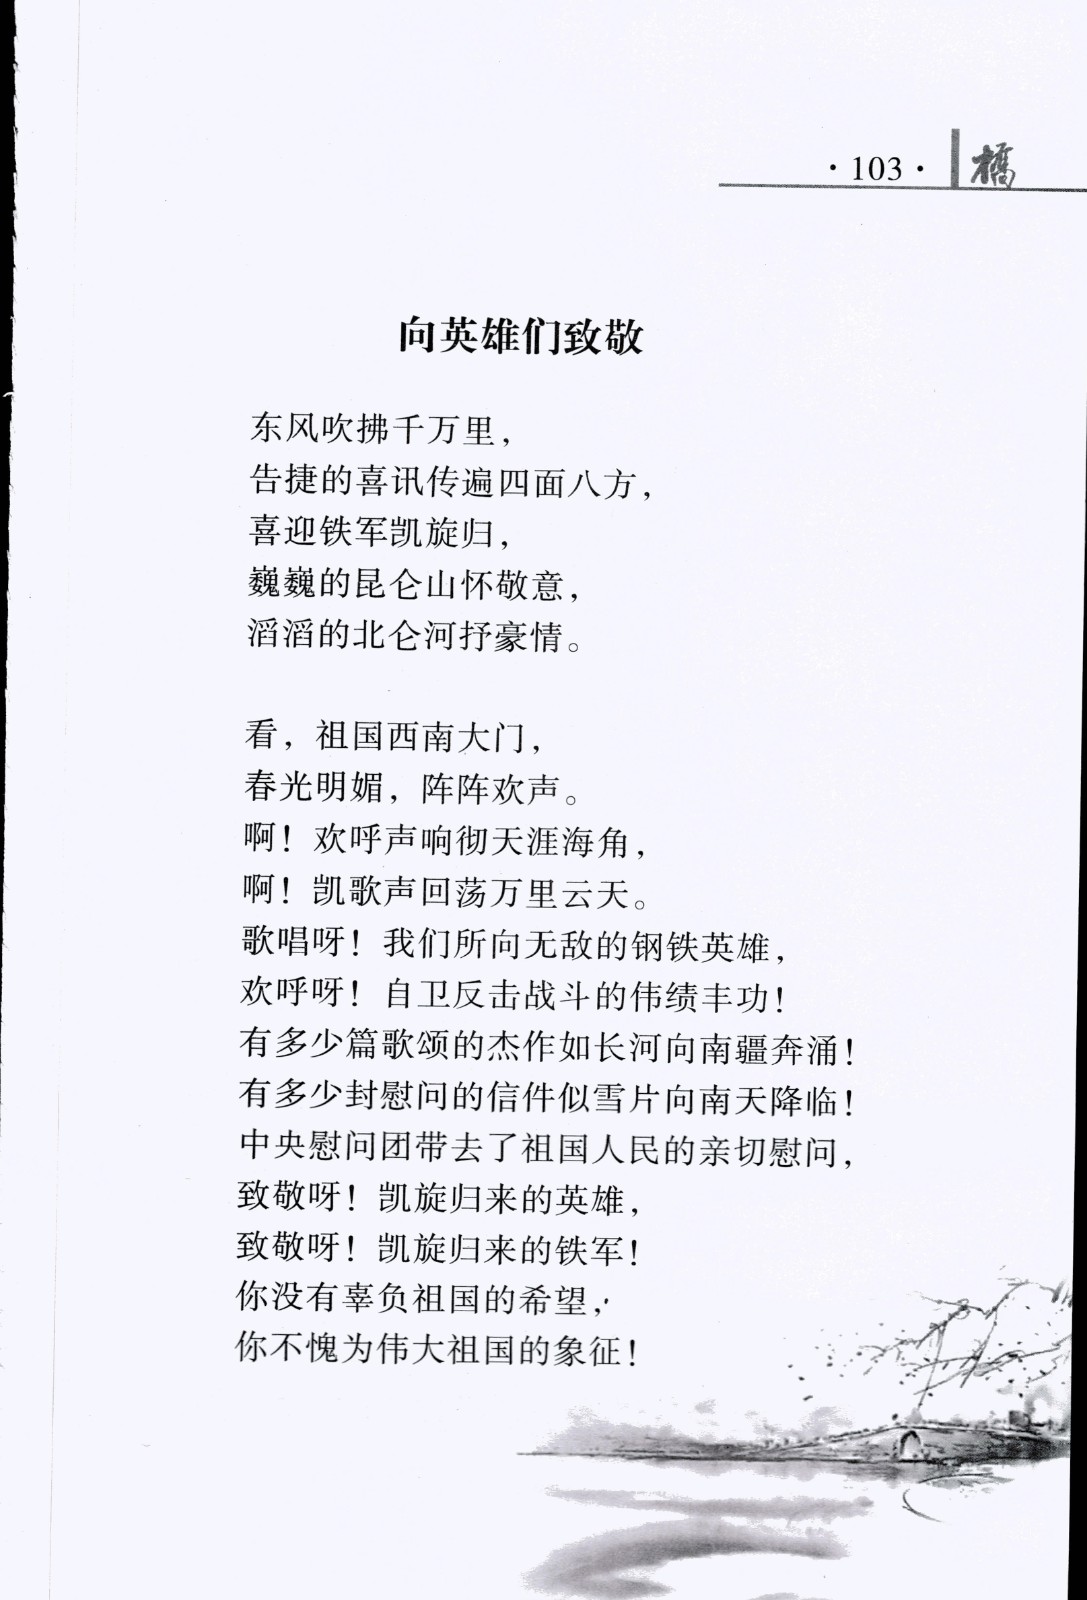 ·103· 橋
向英雄们致敬
东风吹拂千万里，
告捷的喜讯传遍四面八方，
喜迎铁军凯旋归，
巍巍的昆仑山怀敬意，
滔滔的北仑河抒豪情。
看，祖国西南大门，
春光明媚，阵阵欢声。
啊！欢呼声响彻天涯海角，
啊！凯歌声回荡万里云天。
歌唱呀！我们所向无敌的钢铁英雄，
欢呼呀！自卫反击战斗的伟绩丰功！
有多少篇歌颂的杰作如长河向南疆奔涌！
有多少封慰问的信件似雪片向南天降临！
中央慰问团带去了祖国人民的亲切慰问，
致敬呀！凯旋归来的英雄，
致敬呀！凯旋归来的铁军！
你没有辜负祖国的希望，
你不愧为伟大祖国的象征！